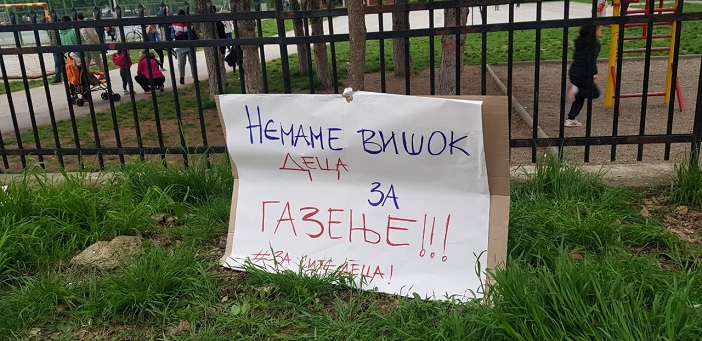 НЕМАМЕ ВИШОК
ДЕЦА
ЗА
ГАЗЕЊЕ!!!
#ЗА ДЕЦА!